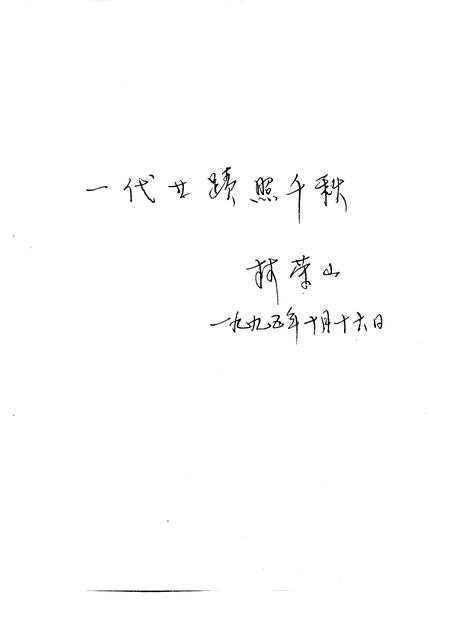 一代蹟照千秋
林荣山
一九九五年十月十六日